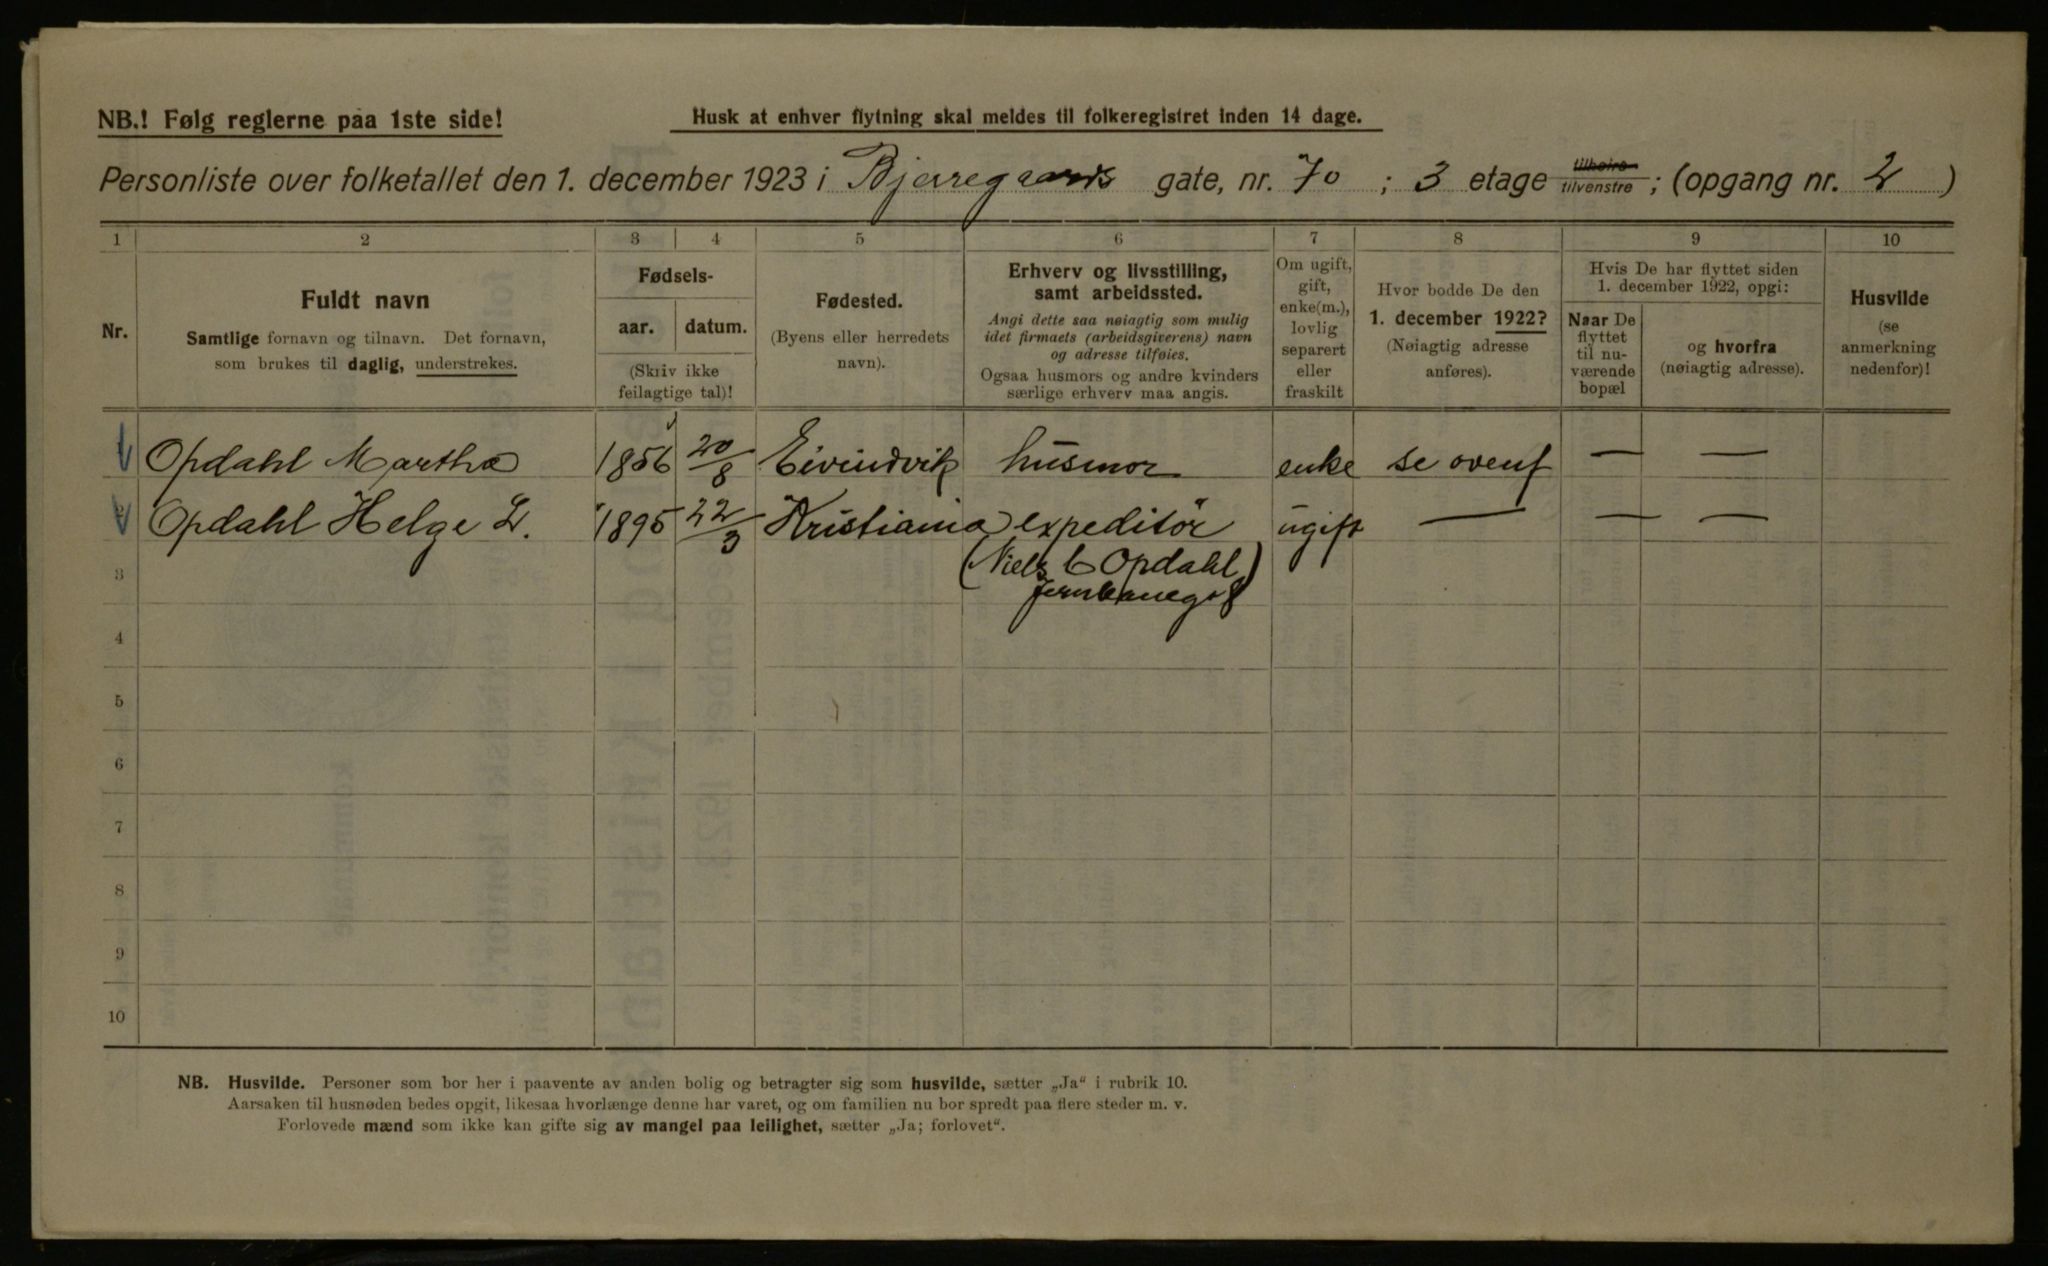 NB.! Følg reglerne paa 1ste side!
Husk at enhver flytning skal meldes til folkeregistret inden 14 dage.
Personliste over folketallet den 1. december 1923 i Bjerregaards gate, nr. 70 ; 3 etage tilhøire tilvenstre ; (opgang nr. 2 )
1 2 3 4 5 6 7 8 9 10
Nr.
Fuldt navn
Samtlige fornavn og tilnavn. Det fornavn,
som brukes til daglig, understrekes.
Fødsels-
aar. datum.
(Skriv ikke
feilagtige tal)!
Fødested.
(Byens eller herredets
navn).
Erhverv og livsstilling,
samt arbeidssted.
Angi dette saa nøiagtig som mulig
idet firmaets (arbeidsgiverens) navn
og adresse tilføies.
Ogsaa husmors og andre kvinders
særlige erhverv maa angis.
Om ugift,
gift,
enke(m.),
lovlig
separert
eller
fraskilt
Hvor bodde De den
1. december 1922?
(Nøiagtig adresse
anføres).
Hvis De har flyttet siden
1. december 1922, opgi:
Naar De
flyttet
til nu-
værende
bopæl
og hvorfra
(nøiagtig adresse).
Husvilde
(se
anmerkning
nedenfor)!
1 Opdahl Martha 1856 20/8 Eivindvik husmor enke se ovenf — —
2 Opdahl Helge L. 1895 22/3 Kristiania expeditör ugift — — —
3 (Niels C Opdahl)
Jernbaneg 8
4
5
6
7
8
9
10
NB. Husvilde. Personer som bor her i paavente av anden bolig og betragter sig som husvilde, sætter „Ja“ i rubrik 10.
Aarsaken til husnøden bedes opgit, likesaa hvorlænge denne har varet, og om familien nu bor spredt paa flere steder m. v.
Forlovede mænd som ikke kan gifte sig av mangel paa leilighet, sætter „Ja; forlovet“.